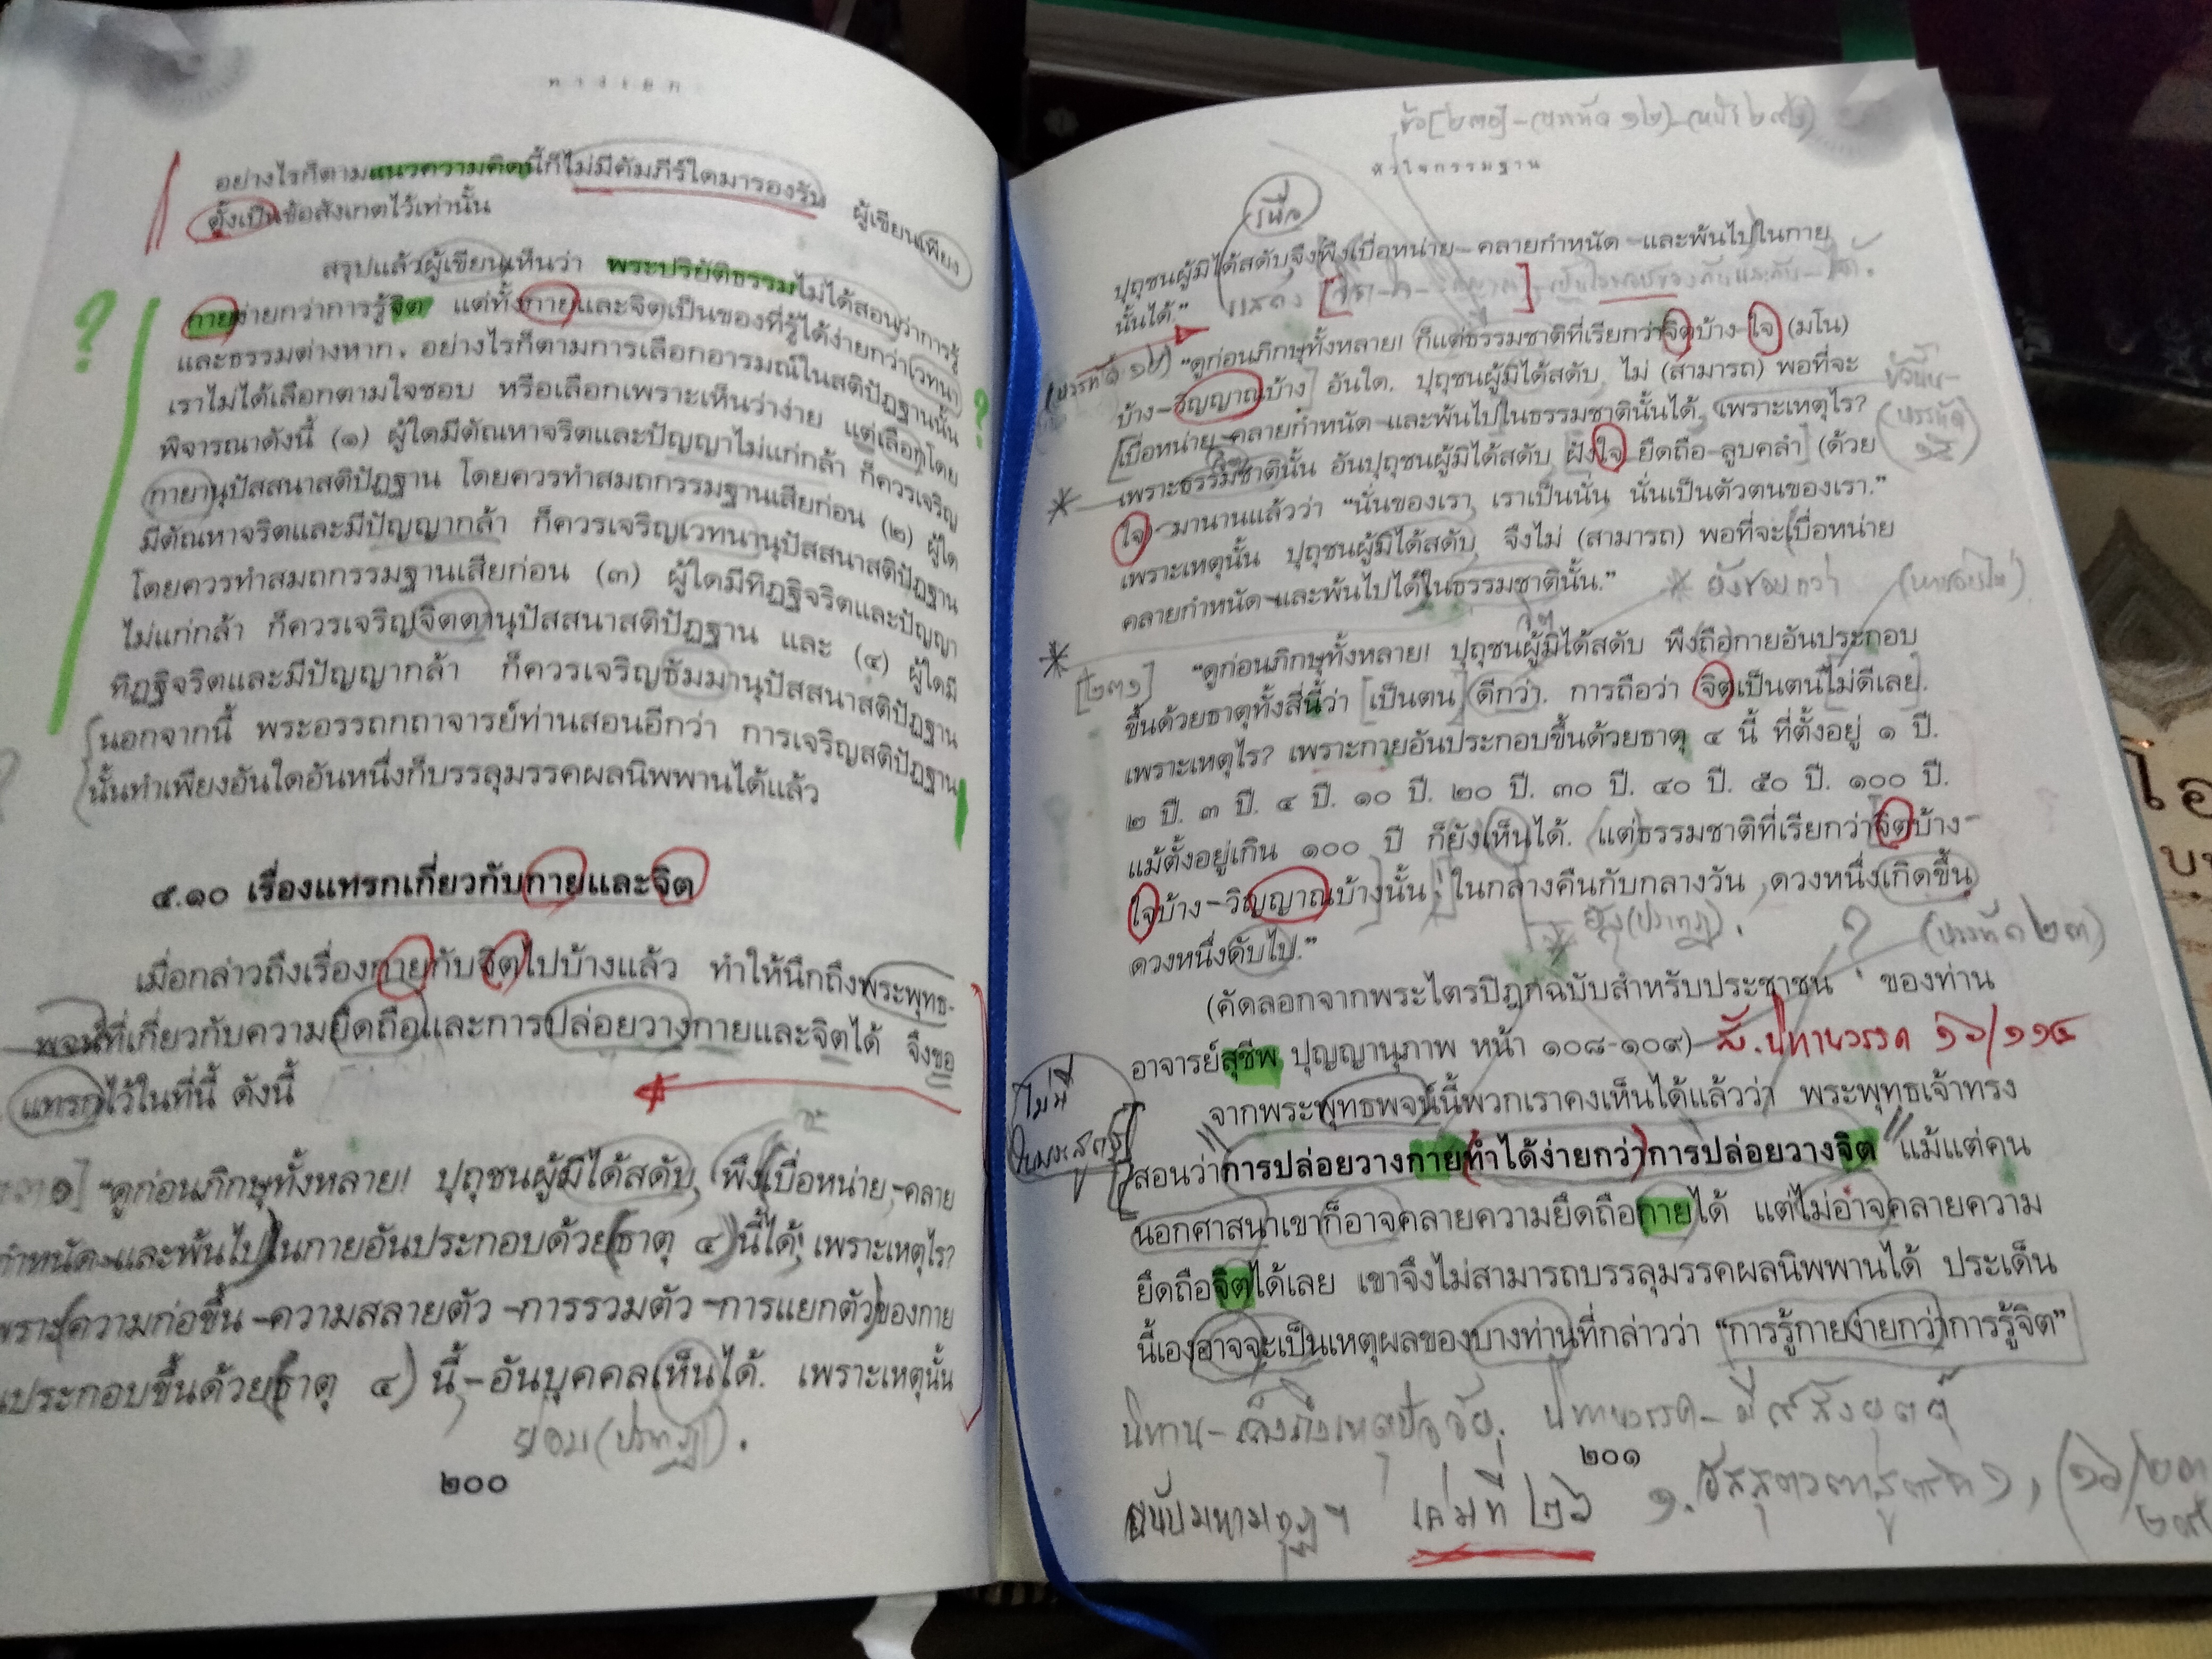 ทางเอก
อย่างไรก็ตามแนวความคิดนี้ก็ไม่มีคัมภีร์ใดมารองรับ ผู้เขียนเพียง
ตั้งเป็นข้อสังเกตไว้เท่านั้น
สรุปแล้วผู้เขียนเห็นว่า พระปริยัติธรรมไม่ได้สอนว่าการรู้
กายง่ายกว่าการรู้จิต แต่ทั้งกายและจิตเป็นของที่รู้ได้ง่ายกว่าเวทนา
และธรรมต่างหาก. อย่างไรก็ตามการเลือกอารมณ์ในสติปัฏฐานนั้น
เราไม่ได้เลือกตามใจชอบ หรือเลือกเพราะเห็นว่าง่าย แต่เลือกโดย
พิจารณาดังนี้ (๑) ผู้ใดมีตัณหาจริตและปัญญาไม่แก่กล้า ก็ควรเจริญ
กายานุปัสสนาสติปัฏฐาน โดยควรทำสมถกรรมฐานเสียก่อน (๒) ผู้ใด
มีตัณหาจริตและมีปัญญากล้า ก็ควรเจริญเวทนานุปัสสนาสติปัฏฐาน
โดยควรทำสมถกรรมฐานเสียก่อน (๓) ผู้ใดมีทิฏฐิจริตและปัญญา
ไม่แก่กล้า ก็ควรเจริญจิตตานุปัสสนาสติปัฏฐาน และ (๔) ผู้ใดมี
ทิฏฐิจริตและมีปัญญากล้า ก็ควรเจริญธัมมานุปัสสนาสติปัฏฐาน
นอกจากนี้ พระอรรถกถาจารย์ท่านสอนอีกว่า การเจริญสติปัฏฐาน
นั้นทำเพียงอันใดอันหนึ่งก็บรรลุมรรคผลนิพพานได้แล้ว
๕.๑๐ เรื่องแทรกเกี่ยวกับกายและจิต
เมื่อกล่าวถึงเรื่องกายกับจิตไปบ้างแล้ว ทำให้นึกถึงพระพุทธ-
พจน์ที่เกี่ยวกับความยึดถือและการปล่อยวางกายและจิตได้ จึงขอ
แทรกไว้ในที่นี้ ดังนี้
“ดูก่อนภิกษุทั้งหลาย! ปุถุชนผู้มิได้สดับ, พึงเบื่อหน่าย-คลาย
กำหนัด-และพ้นไปในกายอันประกอบด้วยธาตุ ๔ นี้ได้, เพราะเหตุไร?
เพราะความก่อขึ้น-ความสลายตัว-การรวมตัว-การแยกตัวของกาย
ประกอบขึ้นด้วยธาตุ ๔ นี้,-อันบุคคลเห็นได้. เพราะเหตุนั้น
ย่อม(ปรากฏ).
๒๐๐
หัวใจกรรมฐาน
ปุถุชนผู้มิได้สดับจึงพึงเบื่อหน่าย-คลายกำหนัด-และพ้นไปในกาย
นั้นได้.”
“ดูก่อนภิกษุทั้งหลาย! ก็แต่ธรรมชาติที่เรียกว่าจิตบ้าง-ใจ (มโน)
บ้าง-วิญญาณบ้าง อันใด, ปุถุชนผู้มิได้สดับ, ไม่ (สามารถ) พอที่จะ
เบื่อหน่าย-คลายกำหนัด-และพ้นไปในธรรมชาตินั้นได้, เพราะเหตุไร?
เพราะธรรมชาตินั้น อันปุถุชนผู้มิได้สดับ ฝังใจ ยึดถือ-ลูบคลำ (ด้วย
ใจ)-มานานแล้วว่า “นั่นของเรา, เราเป็นนั่น นั่นเป็นตัวตนของเรา.”
เพราะเหตุนั้น ปุถุชนผู้มิได้สดับ, จึงไม่ (สามารถ) พอที่จะเบื่อหน่าย
คลายกำหนัด-และพ้นไปได้ในธรรมชาตินั้น.”
[๒๓๑] “ดูก่อนภิกษุทั้งหลาย! ปุถุชนผู้มิได้สดับ พึงถือกายอันประกอบ
ขึ้นด้วยธาตุทั้งสี่นี้ว่า เป็นตน ดีกว่า. การถือว่า จิตเป็นตนไม่ดีเลย.
เพราะเหตุไร? เพราะกายอันประกอบขึ้นด้วยธาตุ ๔ นี้ ที่ตั้งอยู่ ๑ ปี.
๒ ปี. ๓ ปี. ๔ ปี. ๑๐ ปี. ๒๐ ปี. ๓๐ ปี. ๔๐ ปี. ๕๐ ปี. ๑๐๐ ปี.
แม้ตั้งอยู่เกิน ๑๐๐ ปี ก็ยังเห็นได้. แต่ธรรมชาติที่เรียกว่าจิตบ้าง-
ใจบ้าง-วิญญาณบ้างนั้น, ในกลางคืนกับกลางวัน ,ดวงหนึ่งเกิดขึ้น
ดวงหนึ่งดับไป.”
(คัดลอกจากพระไตรปิฎกฉบับสำหรับประชาชน ของท่าน
อาจารย์สุชีพ ปุญญานุภาพ หน้า ๑๐๘-๑๐๙)
จากพระพุทธพจน์นี้พวกเราคงเห็นได้แล้วว่า พระพุทธเจ้าทรง
สอนว่าการปล่อยวางกายทำได้ง่ายกว่าการปล่อยวางจิต แม้แต่คน
นอกศาสนาเขาก็อาจคลายความยึดถือกายได้ แต่ไม่อาจคลายความ
ยึดถือจิตได้เลย เขาจึงไม่สามารถบรรลุมรรคผลนิพพานได้ ประเด็น
นี้เองอาจจะเป็นเหตุผลของบางท่านที่กล่าวว่า “การรู้กายง่ายกว่าการรู้จิต”
๒๐๑
เล่มที่ ๒๖